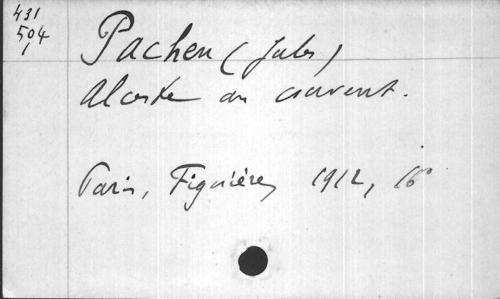 431
504
1
Pacheu (Jules)
Alceste au couvent.
Paris, Figuière, 1912, 16°